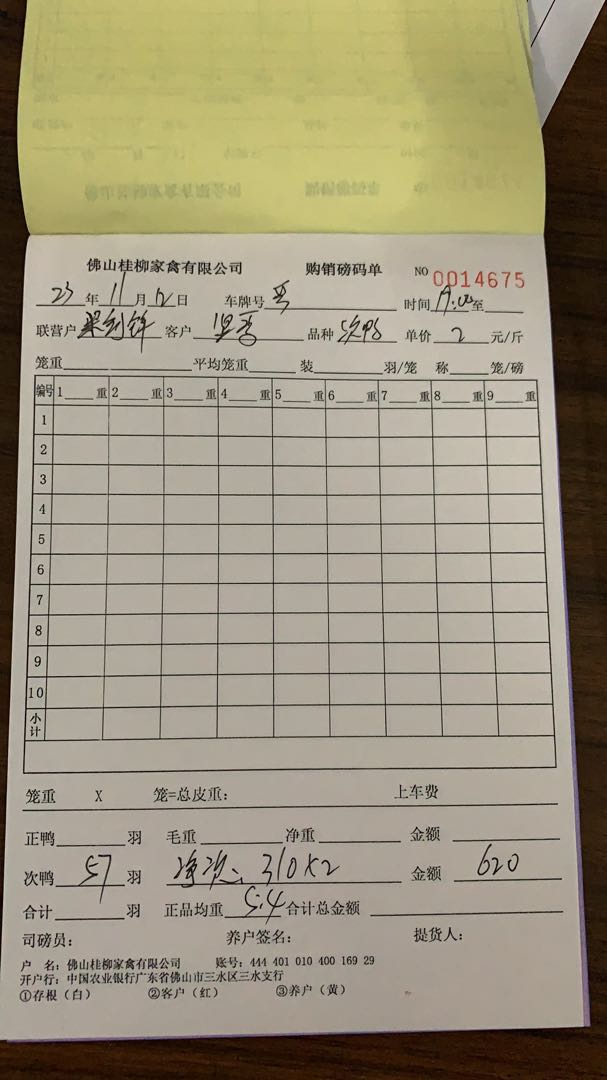 佛山桂柳家禽有限公司 购销磅码单 NO 0014675
23年11月12日 车牌号 时间 至
联营户 客户 品种 次鸭 单价 2 元/斤
笼重 平均笼重 装 羽/笼 称 笼/磅
编号 1 重 2 重 3 重 4 重 5 重 6 重 7 重 8 重 9 重
1
2
3
4
5
6
7
8
9
10
小计
笼重 X 笼=总皮重: 上车费
正鸭 羽 毛重 净重 金额
次鸭 57 羽 净次: 310X2 金额 620
合计 羽 正品均重 5.4 合计总金额
司磅员: 养户签名: 提货人:
户 名: 佛山桂柳家禽有限公司 账号: 444 401 010 400 169 29
开户行: 中国农业银行广东省佛山市三水区三水支行
①存根(白) ②客户(红) ③养户(黄)